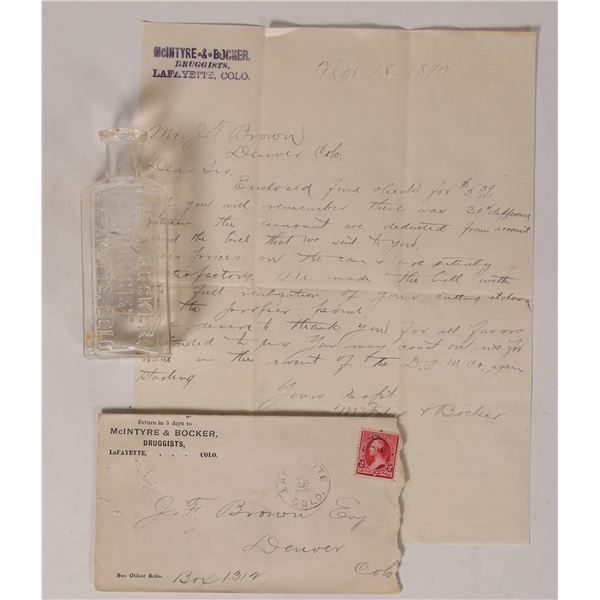 McINTYRE & BOCKER,
DRUGGISTS,
LAFAYETTE, COLO.
Nov. 18. 1892
Mr. J. F. Brown
Denver Colo.
Dear Sir.
Enclosed find check for $5 39/100
you will remember there was 30¢
the amount we deducted from account
and the bill that we sent to you.
prices on the are entirely
We made the bill with
full realization of your cutting it down
the proper point.
desire to thank you for all favors
to us. You may count on us for
in the event of the Co. again
starting
Yours Respt
McIntyre & Bocker
BOCKER
DRUGGIST
LAFAYETTE, COLO
Return in 5 days to
McINTYRE & BOCKER,
DRUGGISTS,
LAFAYETTE, . . . . COLO.
LAFAYETTE COLO.
J. F. Brown Esq
Denver
Colo
See Other Side.
Box 1312